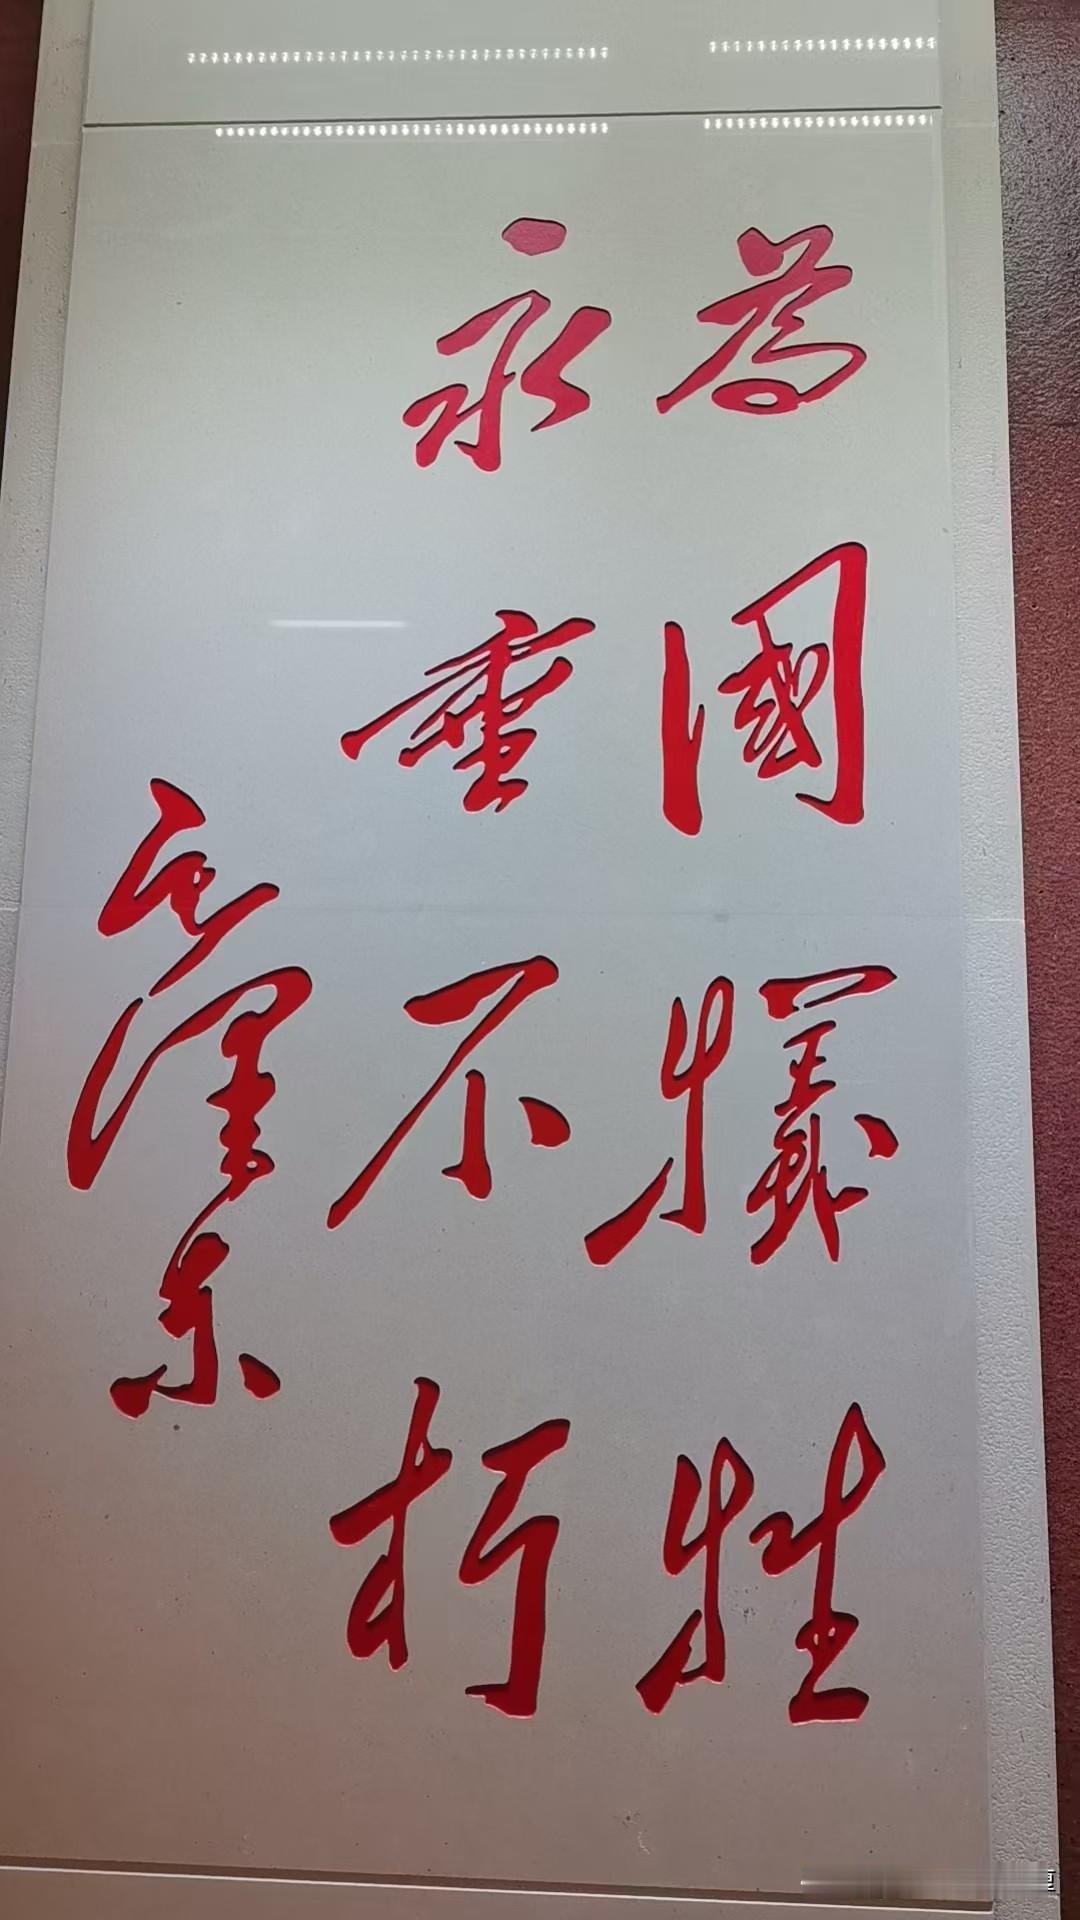 為國犧牲
永垂不朽
毛澤东